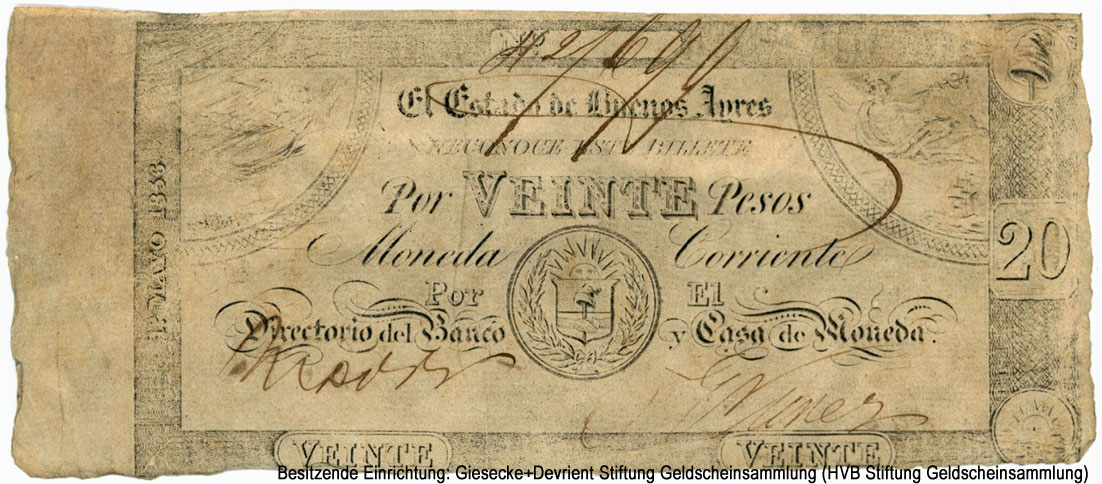 No. 27690
El Estado de Buenos Ayres
RECONOCE ESTE BILLETE
Por VEINTE Pesos
Moneda Corriente
Por El
Directorio del Banco y Casa de Moneda.
1º. MAYO 1858.
20
VEINTE VEINTE
Besitzende Einrichtung: Giesecke+Devrient Stiftung Geldscheinsammlung (HVB Stiftung Geldscheinsammlung)